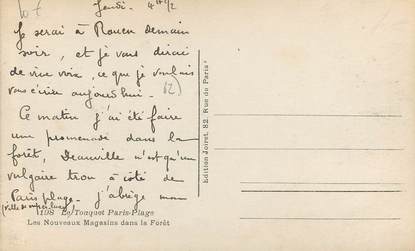 Jeudi. 4h 1/2
Je serai à Rouen demain
soir, et je vous dirai
de vive voix, ce que je voulais
vous écrire aujourd'hui.
Ce matin j'ai été faire
une promenade dans la
forêt, Deauville n'est qu'un
vulgaire trou à côté de
Paris plage. j'abrège mon
198 Le Touquet Paris-Plage
Les Nouveaux Magasins dans la Forêt
Edition Joiret, 82, Rue de Paris